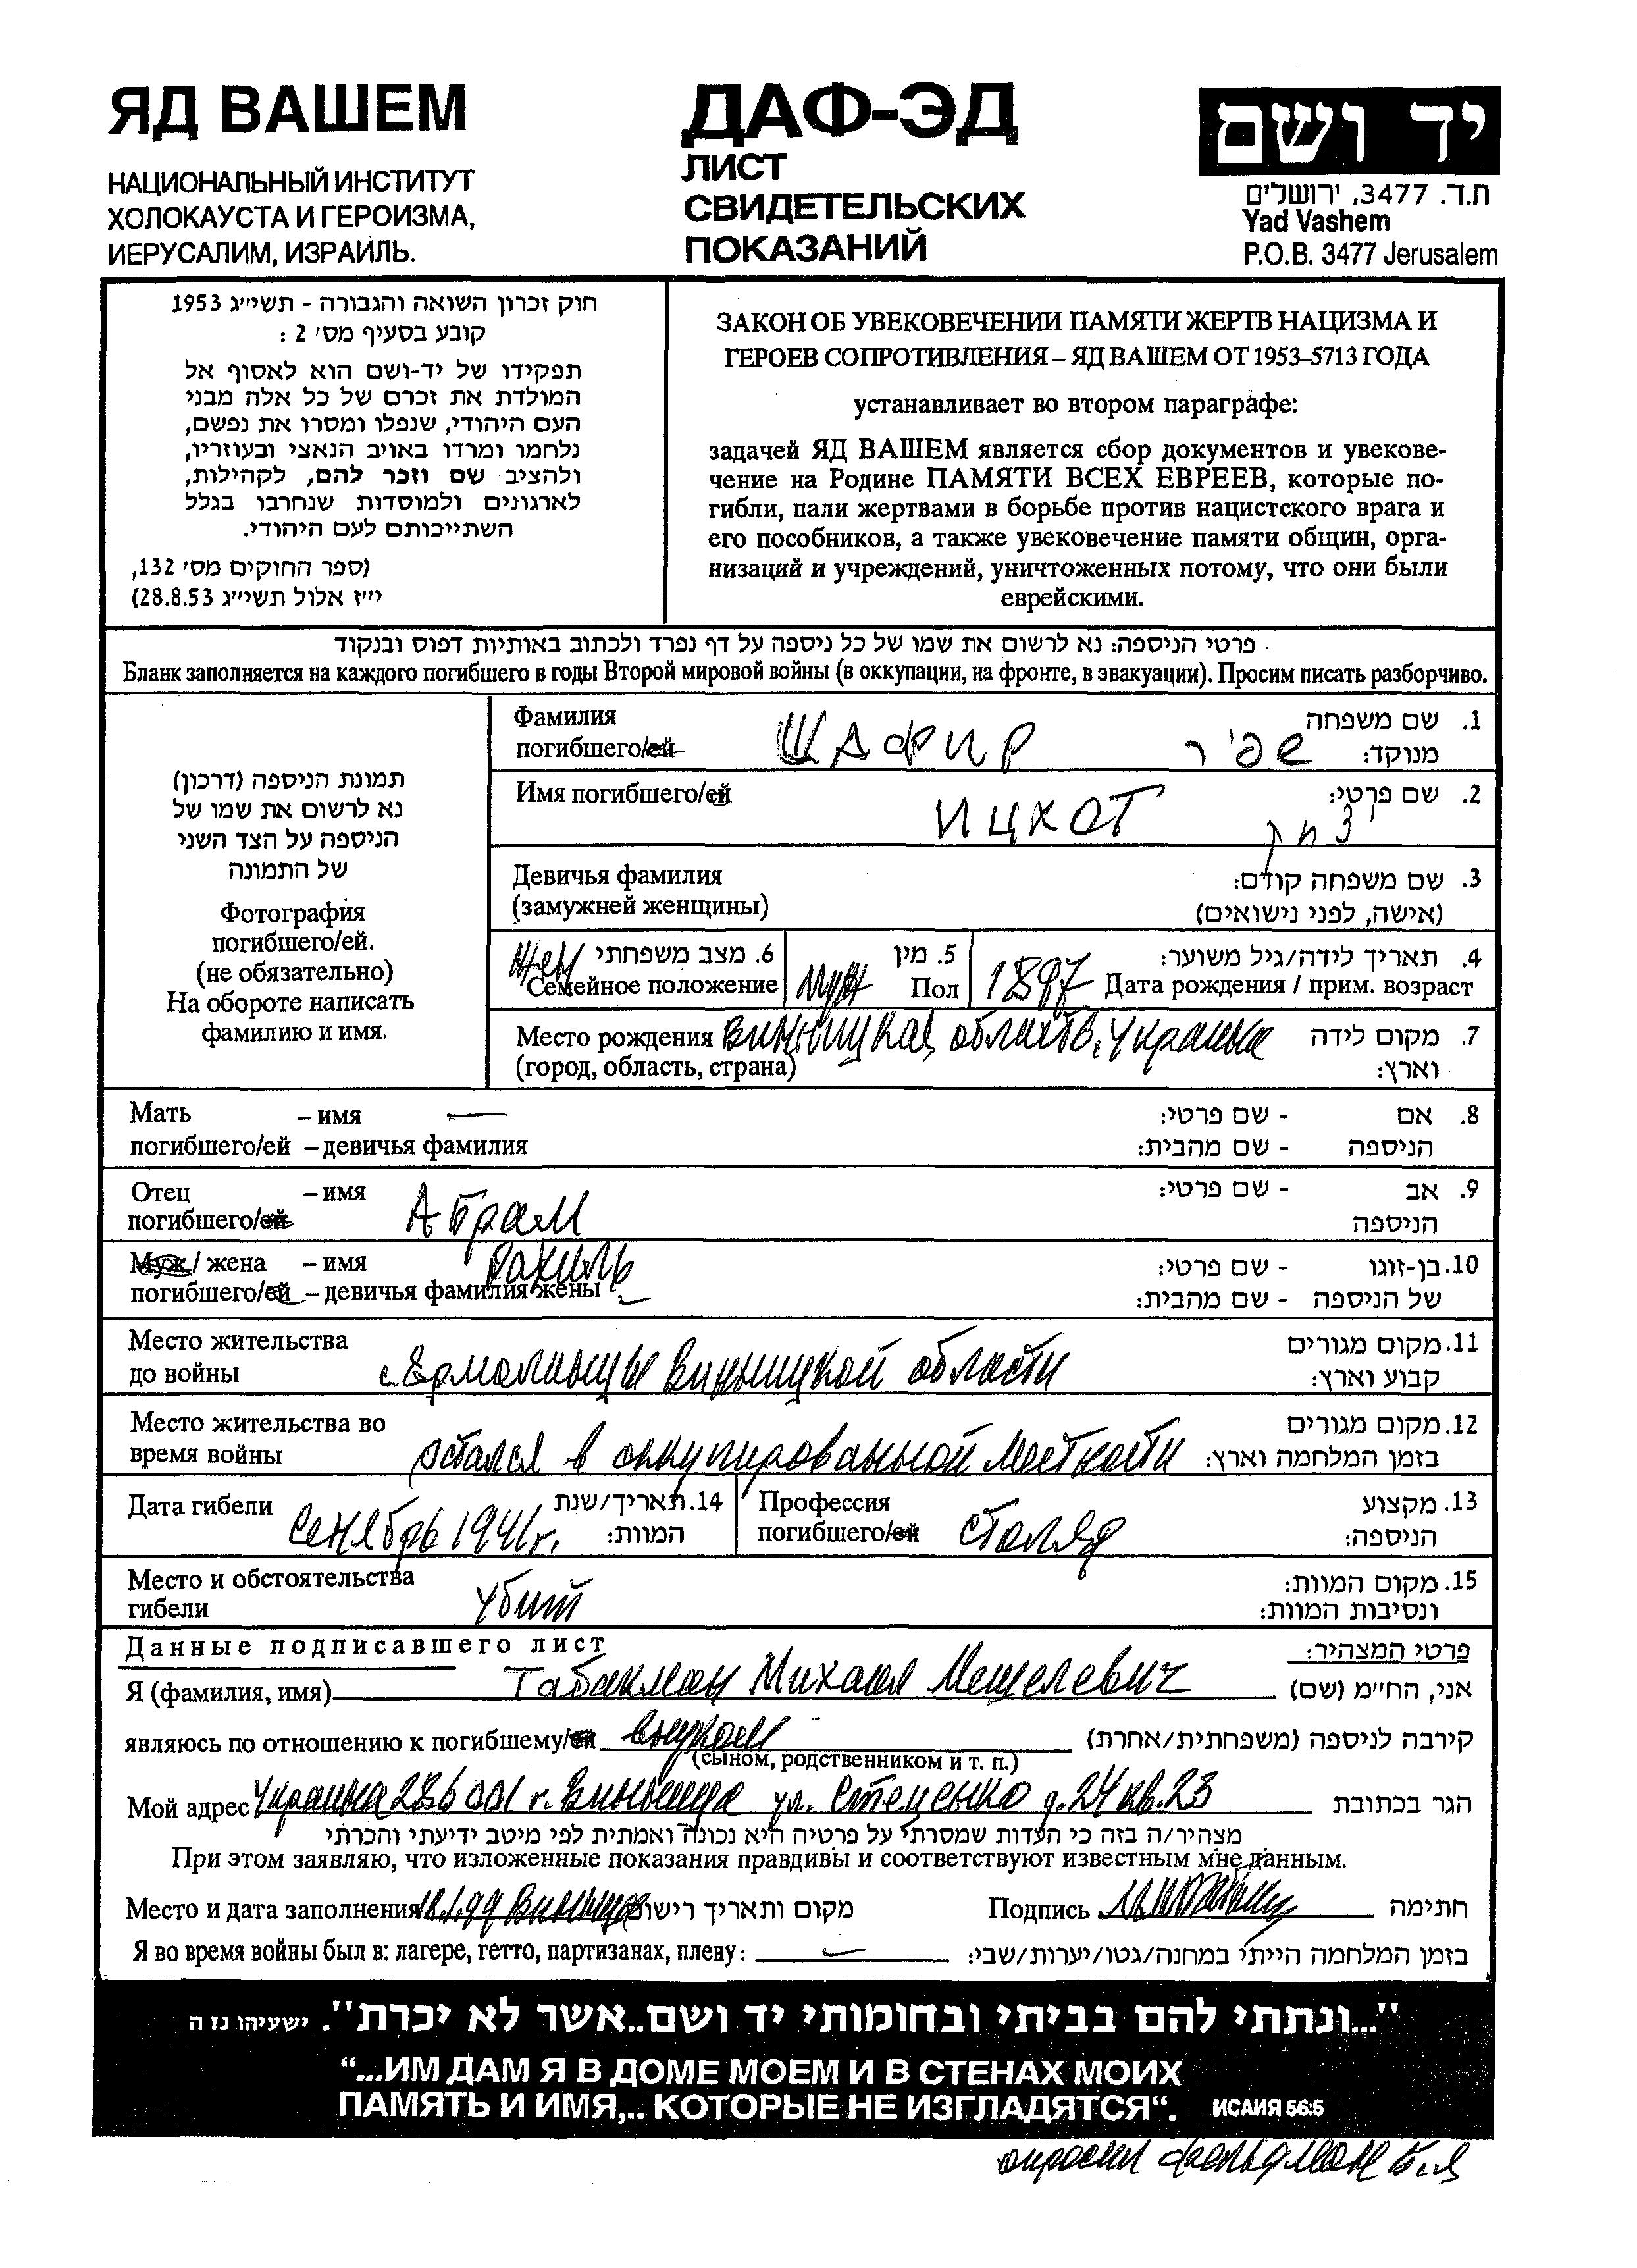 ЯД ВАШЕМ
НАЦИОНАЛЬНЫЙ ИНСТИТУТ
ХОЛОКАУСТА И ГЕРОИЗМА,
ИЕРУСАЛИМ, ИЗРАИЛЬ.
ДАФ-ЭД
ЛИСТ
СВИДЕТЕЛЬСКИХ
ПОКАЗАНИЙ
יד ושם
ת.ד. 3477, ירושלים
Yad Vashem
P.O.B. 3477 Jerusalem
חוק זכרון השואה והגבורה - תשי״ג 1953
קובע בסעיף מס׳ 2 :
תפקידו של יד-ושם הוא לאסוף אל
המולדת את זכרם של כל אלה מבני
העם היהודי, שנפלו ומסרו את נפשם,
נלחמו ומרדו באויב הנאצי ובעוזריו,
ולהציב שם וזכר להם, לקהילות,
לארגונים ולמוסדות שנחרבו בגלל
השתייכותם לעם היהודי.
(ספר החוקים מס׳ 132,
י״ז אלול תשי״ג 28.8.53)
ЗАКОН ОБ УВЕКОВЕЧЕНИИ ПАМЯТИ ЖЕРТВ НАЦИЗМА И
ГЕРОЕВ СОПРОТИВЛЕНИЯ – ЯД ВАШЕМ ОТ 1953–5713 ГОДА
устанавливает во втором параграфе:
задачей ЯД ВАШЕМ является сбор документов и увекове-
чение на Родине ПАМЯТИ ВСЕХ ЕВРЕЕВ, которые по-
гибли, пали жертвами в борьбе против нацистского врага и
его пособников, а также увековечение памяти общин, орга-
низаций и учреждений, уничтоженных потому, что они были
еврейскими.
פרטי הניספה: נא לרשום את שמו של כל ניספה על דף נפרד ולכתוב באותיות דפוס ובנקוד
Бланк заполняется на каждого погибшего в годы Второй мировой войны (в оккупации, на фронте, в эвакуации). Просим писать разборчиво.
תמונת הניספה (דרכון)
נא לרשום את שמו של
הניספה על הצד השני
של התמונה
Фотография
погибшего/ей.
(не обязательно)
На обороте написать
фамилию и имя.
Фамилия 1. שם משפחה
погибшего/ей ШАФИР שפיר מנוקד:
Имя погибшего/ей ИЦХОТ 2. שם פרטי:
יצחק
Девичья фамилия 3. שם משפחה קודם:
(замужней женщины) (אישה, לפני נישואים)
жен 6. מצב משפחתי 5. מין 4. תאריך לידה/גיל משוער:
Семейное положение муж Пол 1897 Дата рождения / прим. возраст
Место рождения Винницкая область, Украина 7. מקום לידה
(город, область, страна) וארץ:
Мать – имя — 8. אם - שם פרטי:
погибшего/ей – девичья фамилия הניספה - שם מהבית:
Отец – имя 9. אב - שם פרטי:
погибшего/ей Абрам הניספה
Муж / жена – имя Рахиль 10. בן-זוגו - שם פרטי:
погибшего/ей – девичья фамилия жены של הניספה - שם מהבית:
Место жительства 11. מקום מגורים
до войны с. Ермолинцы Винницкой области קבוע וארץ:
Место жительства во 12. מקום מגורים
время войны остался в оккупированной местности בזמן המלחמה וארץ:
Дата гибели 14. תאריך/שנת Профессия 13. מקצוע
Сентябрь 1941г. המוות: погибшего/ей столяр הניספה:
Место и обстоятельства 15. מקום המוות:
гибели убит ונסיבות המוות:
Данные подписавшего лист פרטי המצהיר:
Я (фамилия, имя) Табакман Михаил Мешелевич אני, הח״מ (שם)
являюсь по отношению к погибшему/ей внуком קירבה לניספה (משפחתית/אחרת)
(сыном, родственником и т. п.)
Мой адрес Украина 286001 г. Винница ул. Стеценко д.24 кв.23 הגר בכתובת
מצהיר/ה בזה כי העדות שמסרתי על פרטיה היא נכונה ואמתית לפי מיטב ידיעתי והכרתי
При этом заявляю, что изложенные показания правдивы и соответствуют известным мне данным.
Место и дата заполнения Винница מקום ותאריך רישום Подпись חתימה
Я во время войны был в: лагере, гетто, партизанах, плену: — בזמן המלחמה הייתי במחנה/גטו/יערות/שבי:
"...ונתתי להם בביתי ובחומותי יד ושם..אשר לא יכרת". ישעיהו נז ה
“...ИМ ДАМ Я В ДОМЕ МОЕМ И В СТЕНАХ МОИХ
ПАМЯТЬ И ИМЯ,.. КОТОРЫЕ НЕ ИЗГЛАДЯТСЯ“. ИСАИЯ 56:5
опросил Фельдман Б.Я